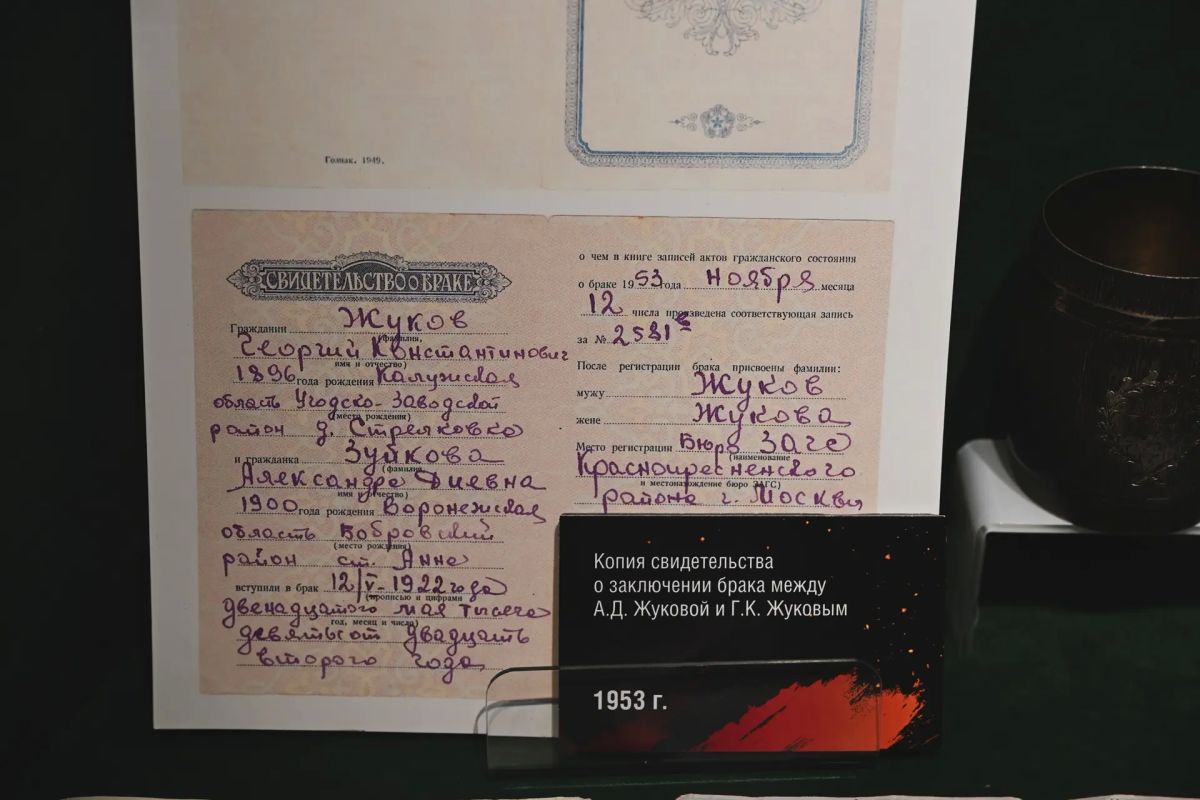 Гознак. 1949.
СВИДЕТЕЛЬСТВО О БРАКЕ
Гражданин Жуков
(фамилия,
Георгий Константинович
имя и отчество)
1896 года рождения Калужская
область Угодско-Заводской
(место рождения)
район д. Стрелковка
и гражданка Зуйкова
(фамилия,
Александра Диевна
имя и отчество)
1900 года рождения Воронежская
область Бобровский
(место рождения)
район ст. Анна
вступили в брак 12/V-1922 года
(прописью и цифрами
двенадцатого мая тысяча
год, месяц и число)
девятьсот двадцать
второго года
о чем в книге записей актов гражданского состояния
о браке 1953 года Ноября месяца
12 числа произведена соответствующая запись
за №
После регистрации брака присвоены фамилии:
мужу Жуков
жене Жукова
Место регистрации Бюро Загс
(наименование
Краснопресненского
и местонахождение бюро ЗАГС)
района г. Москвы
Копия свидетельства
о заключении брака между
А.Д. Жуковой и Г.К. Жуковым
1953 г.